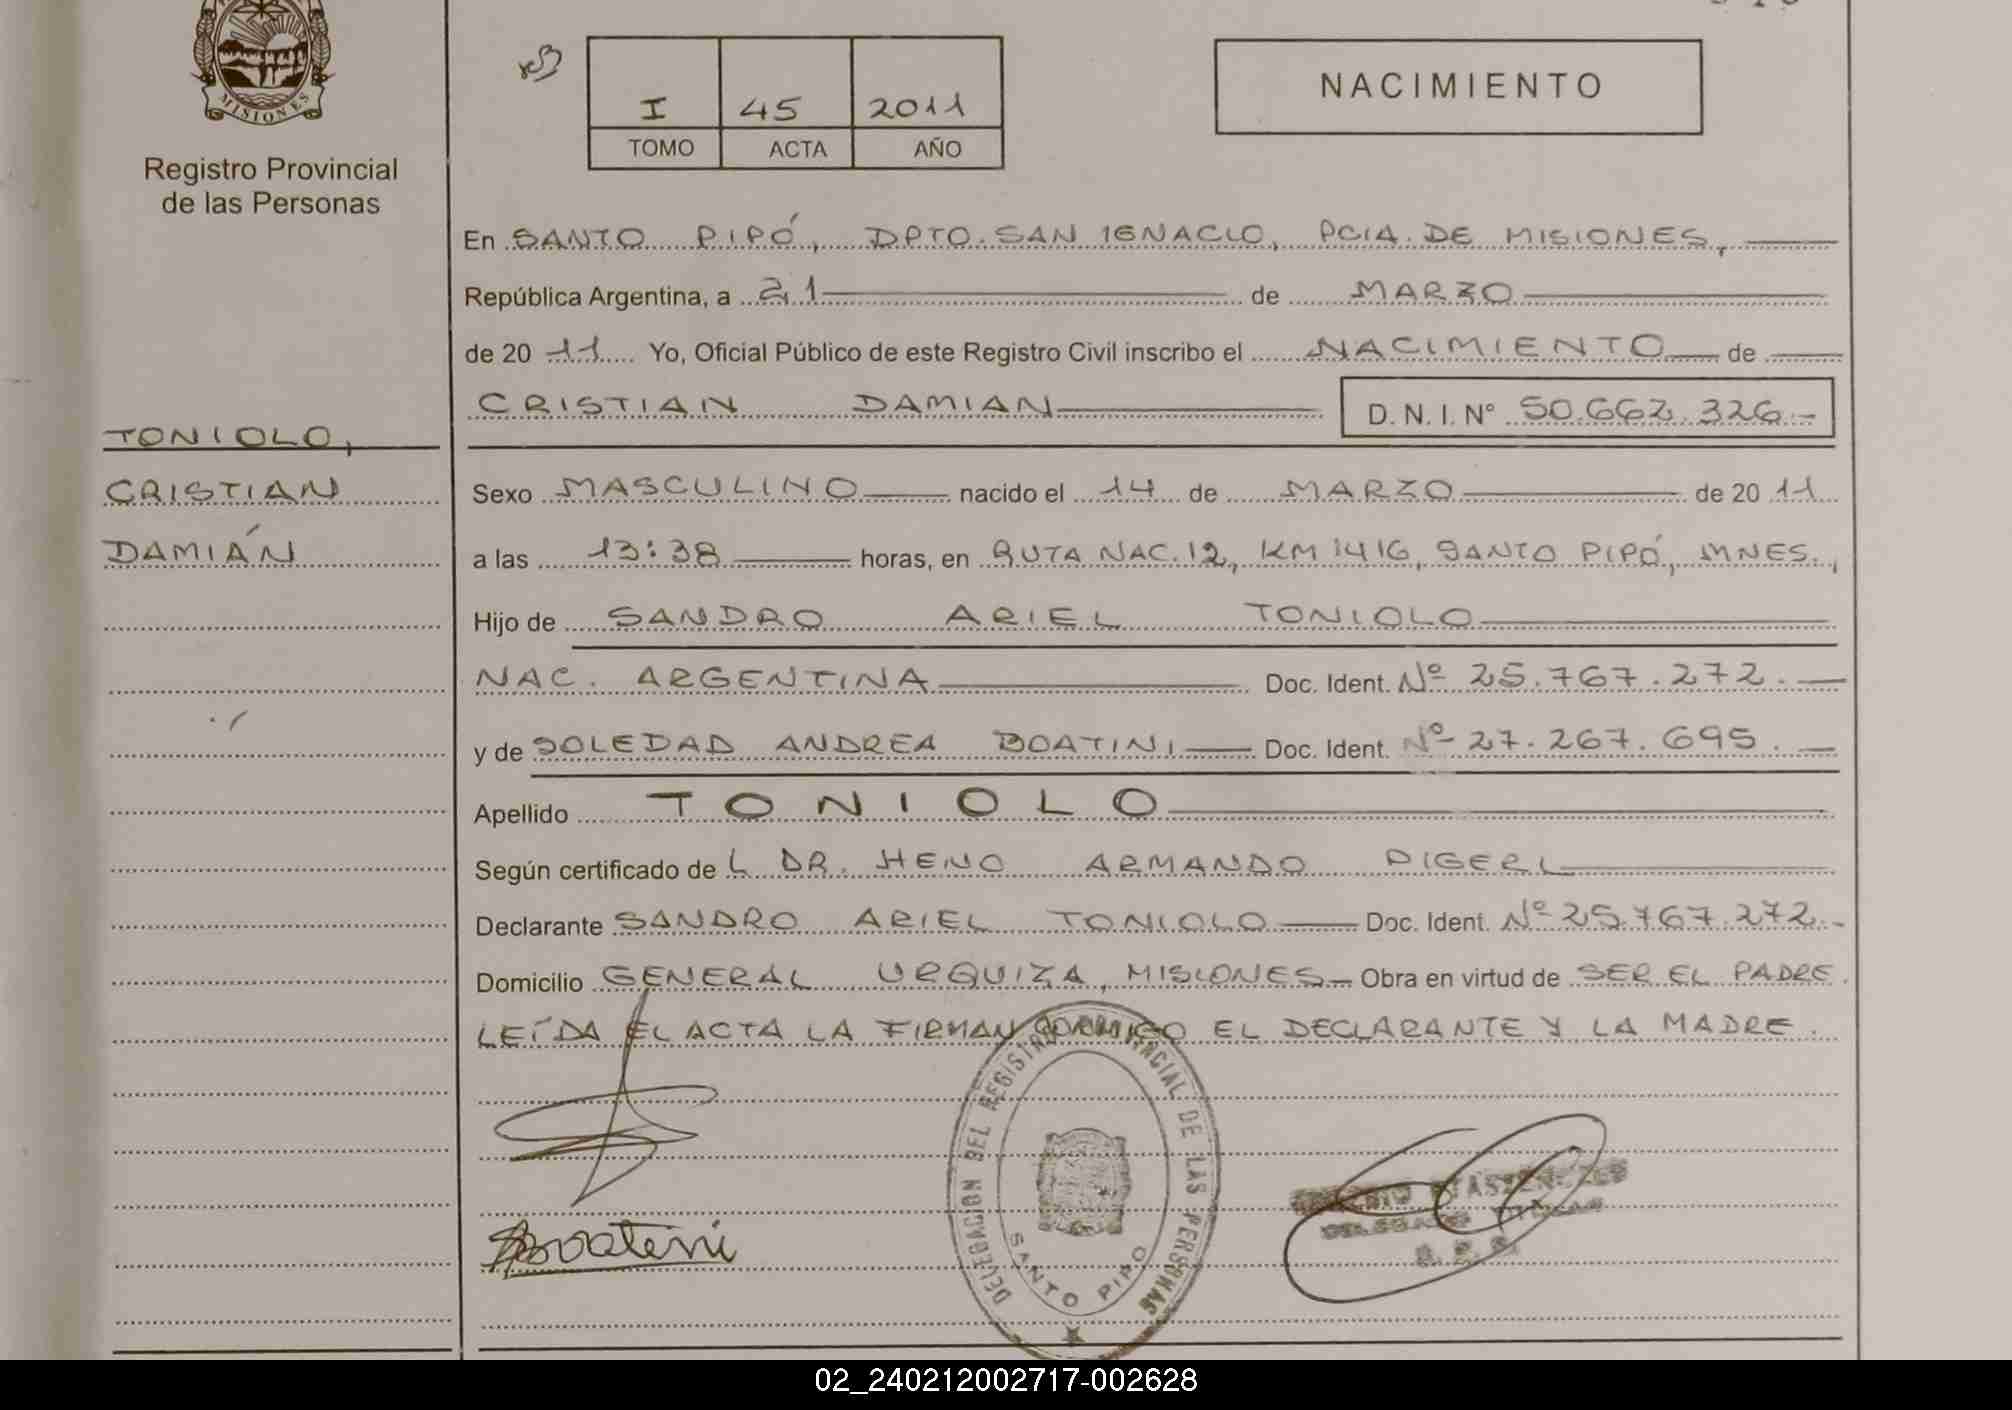 MISIONES
Registro Provincial
de las Personas
I 45 2011
TOMO ACTA AÑO
NACIMIENTO
En SANTO PIPÓ, DPTO. SAN IGNACIO, PCIA. DE MISIONES,
República Argentina, a 21 de MARZO
de 20 11 Yo, Oficial Público de este Registro Civil inscribo el NACIMIENTO de
CRISTIAN DAMIAN D.N.I. N° 50.662.326.-
TONIOLO,
CRISTIAN
DAMIÁN
Sexo MASCULINO nacido el 14 de MARZO de 20 11
a las 13:38 horas, en RUTA NAC. 12, KM 1416, SANTO PIPÓ, MNES.,
Hijo de SANDRO ARIEL TONIOLO
NAC. ARGENTINA Doc. Ident. Nº 25.767.272.
y de SOLEDAD ANDREA BOATINI Doc. Ident. Nº 27.267.695.
Apellido TONIOLO
Según certificado de L DR. HENO ARMANDO DIGERL
Declarante SANDRO ARIEL TONIOLO Doc. Ident. Nº 25.767.272.-
Domicilio GENERAL URQUIZA, MISIONES- Obra en virtud de SER EL PADRE.
LEÍDA EL ACTA LA FIRMAN CONMIGO EL DECLARANTE Y LA MADRE.
DELEGACION DEL REGISTRO PROVINCIAL DE LAS PERSONAS
SANTO PIPO
Boatini
02_240212002717-002628